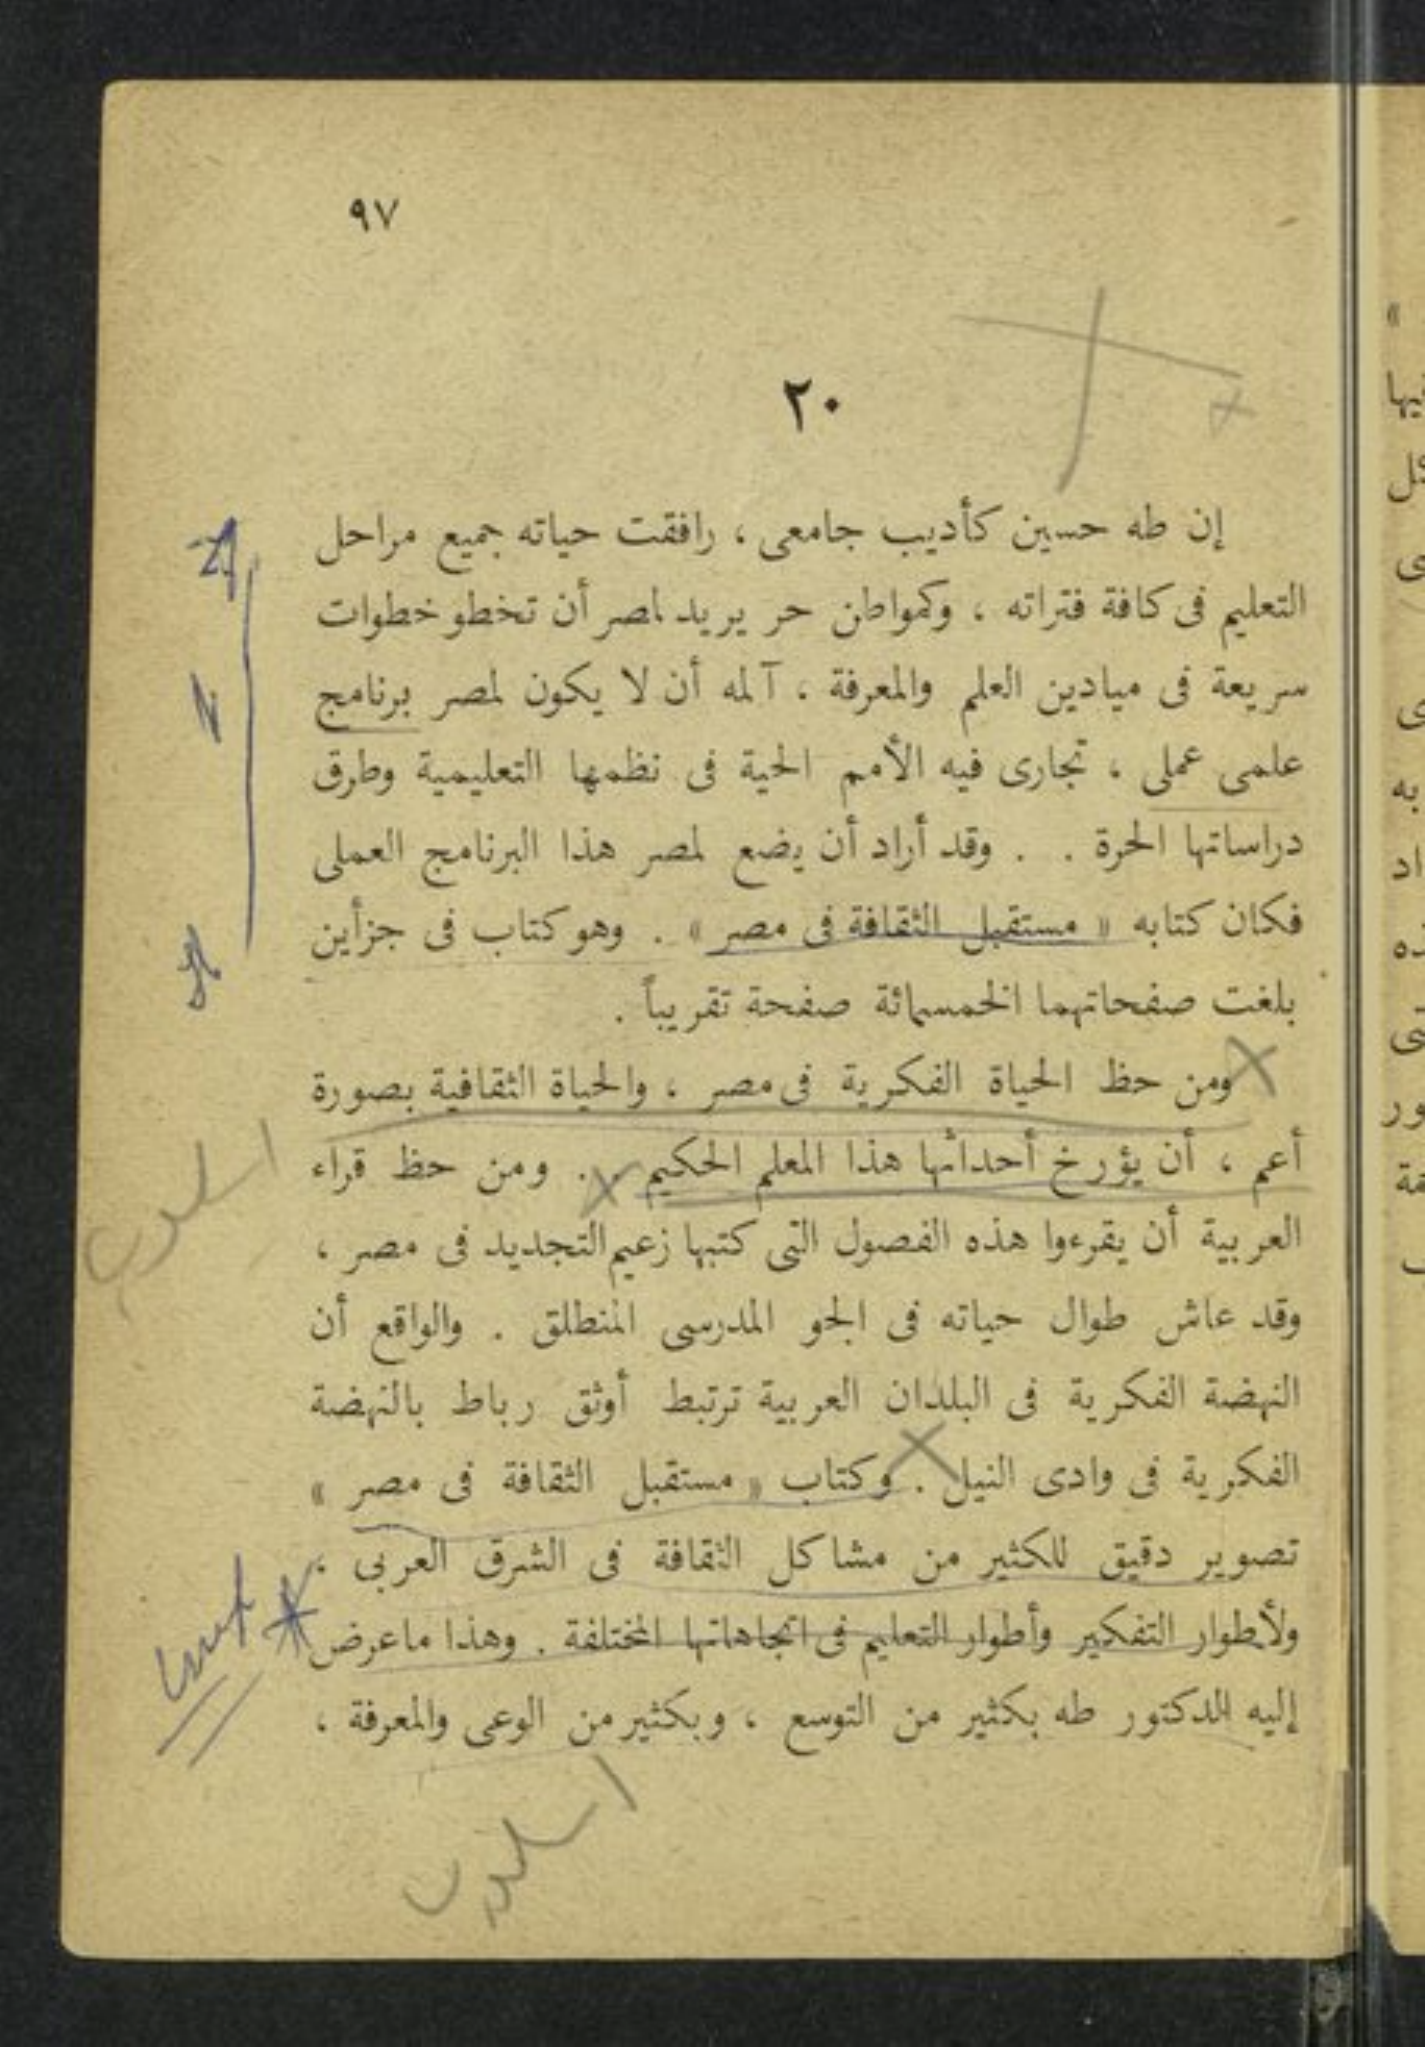 ٩٧
٢٠
إن طه حسين كأديب جامعى ، رافقت حياته جميع مراحل
التعليم فى كافة فتراته ، وكمواطن حر يريد لمصر أن تخطو خطوات
سريعة فى ميادين العلم والمعرفة ، آلمه أن لا يكون لمصر برنامج
علمى عملى ، تجارى فيه الأمم الحية فى نظمها التعليمية وطرق
دراساتها الحرة . . وقد أراد أن يضع لمصر هذا البرنامج العملى
فكان كتابه « مستقبل الثقافة فى مصر » . وهو كتاب فى جزأين
بلغت صفحاتهما الخمسمائة صفحة تقريباً .
ومن حظ الحياة الفكرية فى مصر ، والحياة الثقافية بصورة
أعم ، أن يؤرخ أحداثها هذا المعلم الحكيم . ومن حظ قراء
العربية أن يقرءوا هذه الفصول التى كتبها زعيم التجديد فى مصر ،
وقد عاش طوال حياته فى الجو المدرسى المنطلق . والواقع أن
النهضة الفكرية فى البلدان العربية ترتبط أوثق رباط بالنهضة
الفكرية فى وادى النيل . وكتاب « مستقبل الثقافة فى مصر »
تصوير دقيق للكثير من مشاكل الثقافة فى الشرق العربى ،
ولأطوار التفكير وأطوار التعليم فى اتجاهاتها المختلفة . وهذا ما عرض
إليه الدكتور طه بكثير من التوسع ، وبكثير من الوعى والمعرفة ،
اسلوب
اسلوب